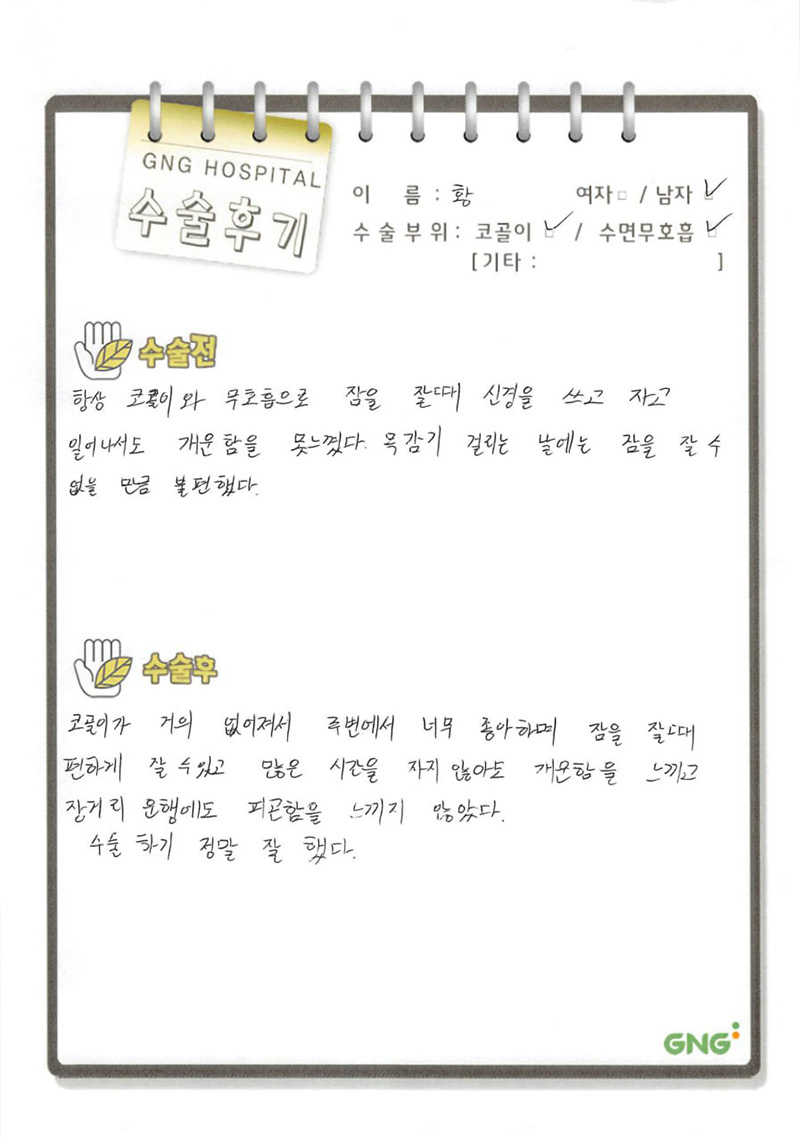 GNG HOSPITAL
수술후기
이 름 : 황 여자□ / 남자☑
수술부위 : 코골이 ☑ / 수면무호흡 ☑
[기타 : ]
수술전
항상 코골이와 무호흡으로 잠을 잘때 신경을 쓰고 자고
일어나서도 개운함을 못느꼈다. 목감기 걸리는 날에는 잠을 잘 수
없을 만큼 불편했다.
수술후
코골이가 거의 없어져서 주변에서 너무 좋아하며 잠을 잘때
편하게 잘 수있고 많은 시간을 자지 않아도 개운함을 느끼고
장거리 운행에도 피곤함을 느끼지 않았다.
수술 하기 정말 잘 했다.
GNG